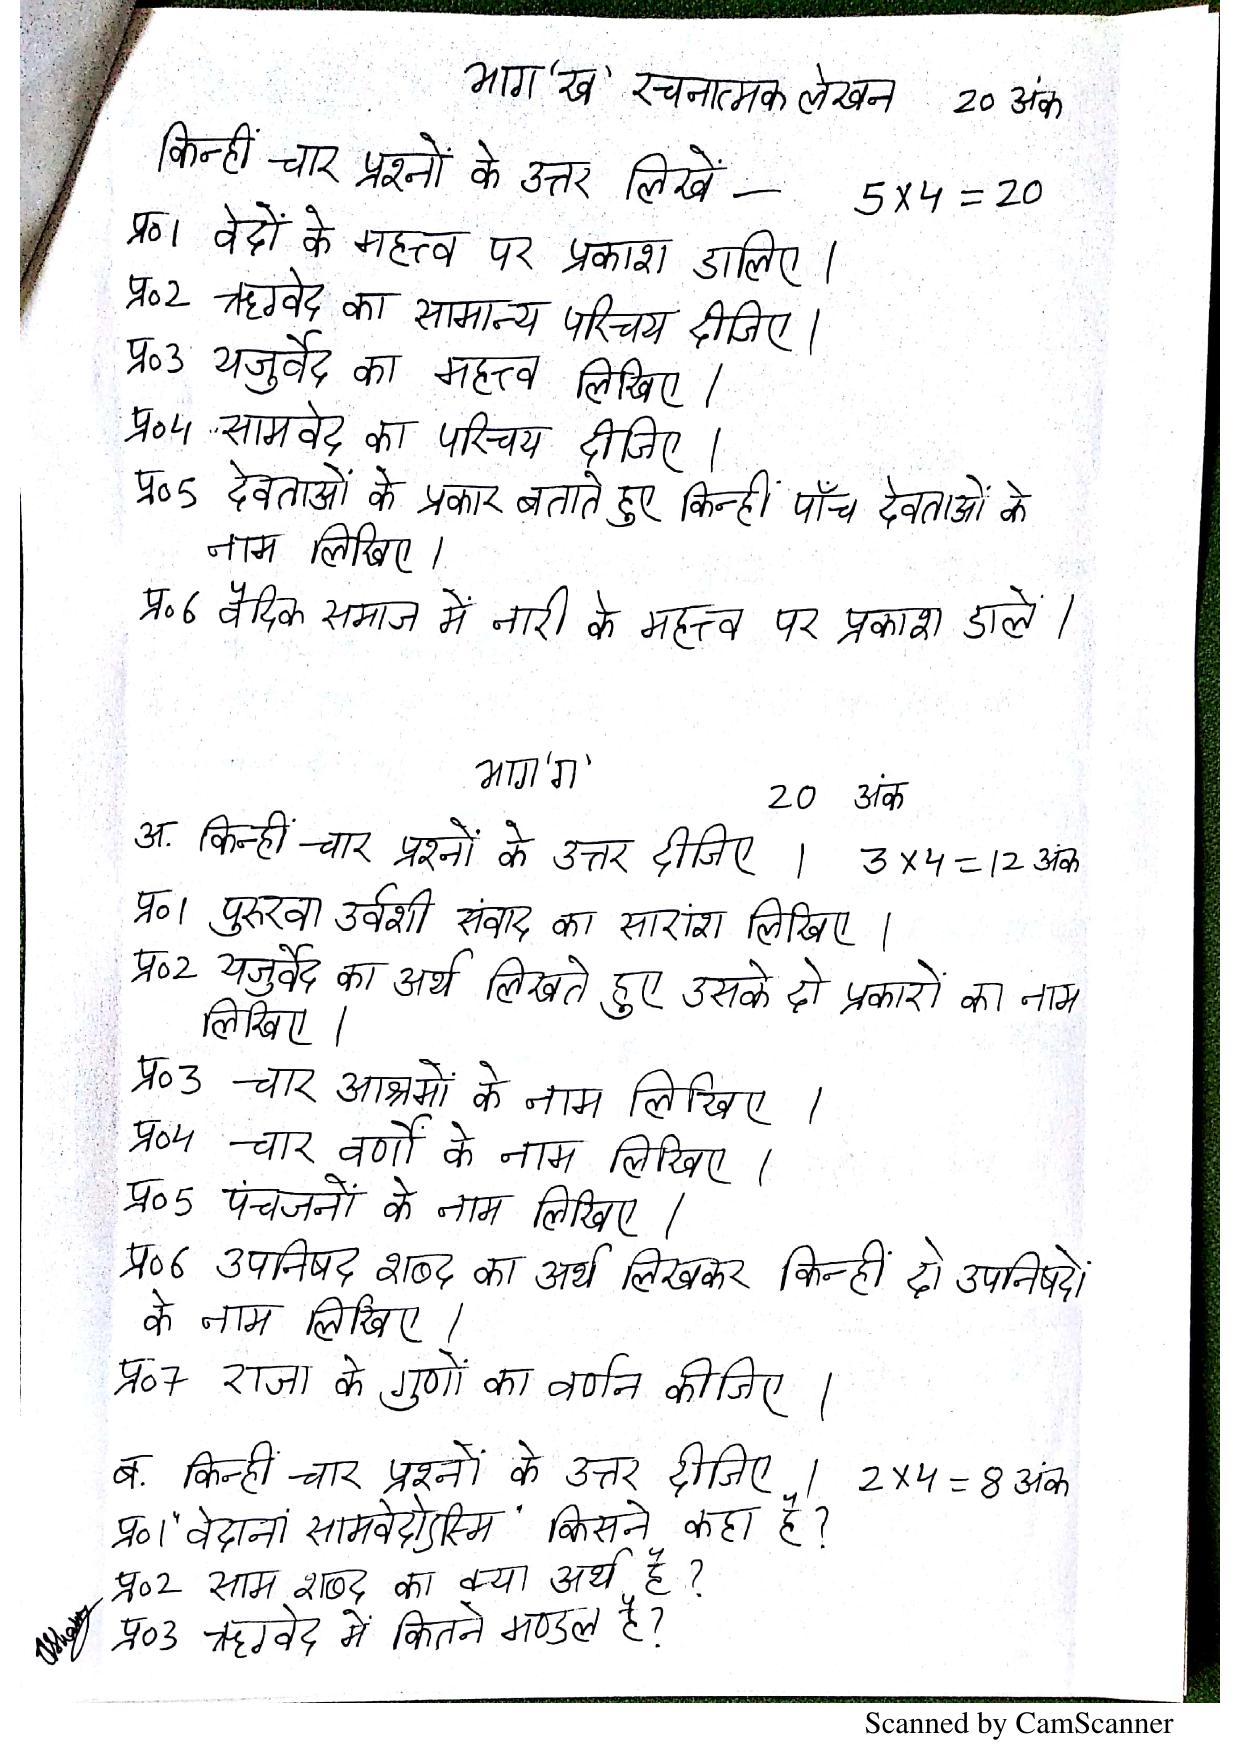 भाग 'ख' रचनात्मक लेखन 20 अंक
किन्हीं चार प्रश्नों के उत्तर लिखें — 5x4=20
प्र०1 वेदों के महत्त्व पर प्रकाश डालिए।
प्र०2 ऋग्वेद का सामान्य परिचय दीजिए।
प्र०3 यजुर्वेद का महत्त्व लिखिए।
प्र०4 सामवेद का परिचय दीजिए।
प्र०5 देवताओं के प्रकार बताते हुए किन्हीं पाँच देवताओं के
नाम लिखिए।
प्र०6 वैदिक समाज में नारी के महत्त्व पर प्रकाश डालें।
भाग 'ग'
20 अंक
अ. किन्हीं चार प्रश्नों के उत्तर दीजिए। 3x4=12 अंक
प्र०1 पुरुरवा उर्वशी संवाद का सारांश लिखिए।
प्र०2 यजुर्वेद का अर्थ लिखते हुए उसके दो प्रकारों का नाम
लिखिए।
प्र०3 चार आश्रमों के नाम लिखिए।
प्र०4 चार वर्णों के नाम लिखिए।
प्र०5 पंचजनों के नाम लिखिए।
प्र०6 उपनिषद शब्द का अर्थ लिखकर किन्हीं दो उपनिषदों
के नाम लिखिए।
प्र०7 राजा के गुणों का वर्णन कीजिए।
ब. किन्हीं चार प्रश्नों के उत्तर दीजिए। 2x4=8 अंक
प्र०1 'वेदानां सामवेदोऽस्मि' किसने कहा है?
प्र०2 साम शब्द का क्या अर्थ है?
प्र०3 ऋग्वेद में कितने मण्डल है?
Scanned by CamScanner